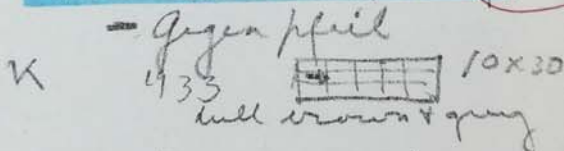 - Gegenpfeil
K 433 10x30
dull brown & grey